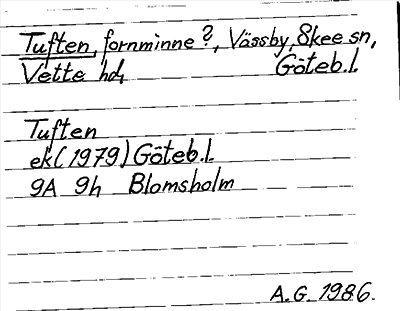 Tuften, fornminne?, Vässby, Skee sn,
Vette hd, Göteb.l.
Tuften
ek (1979) Göteb.l.
9A 9h Blomsholm
A.G. 1986.